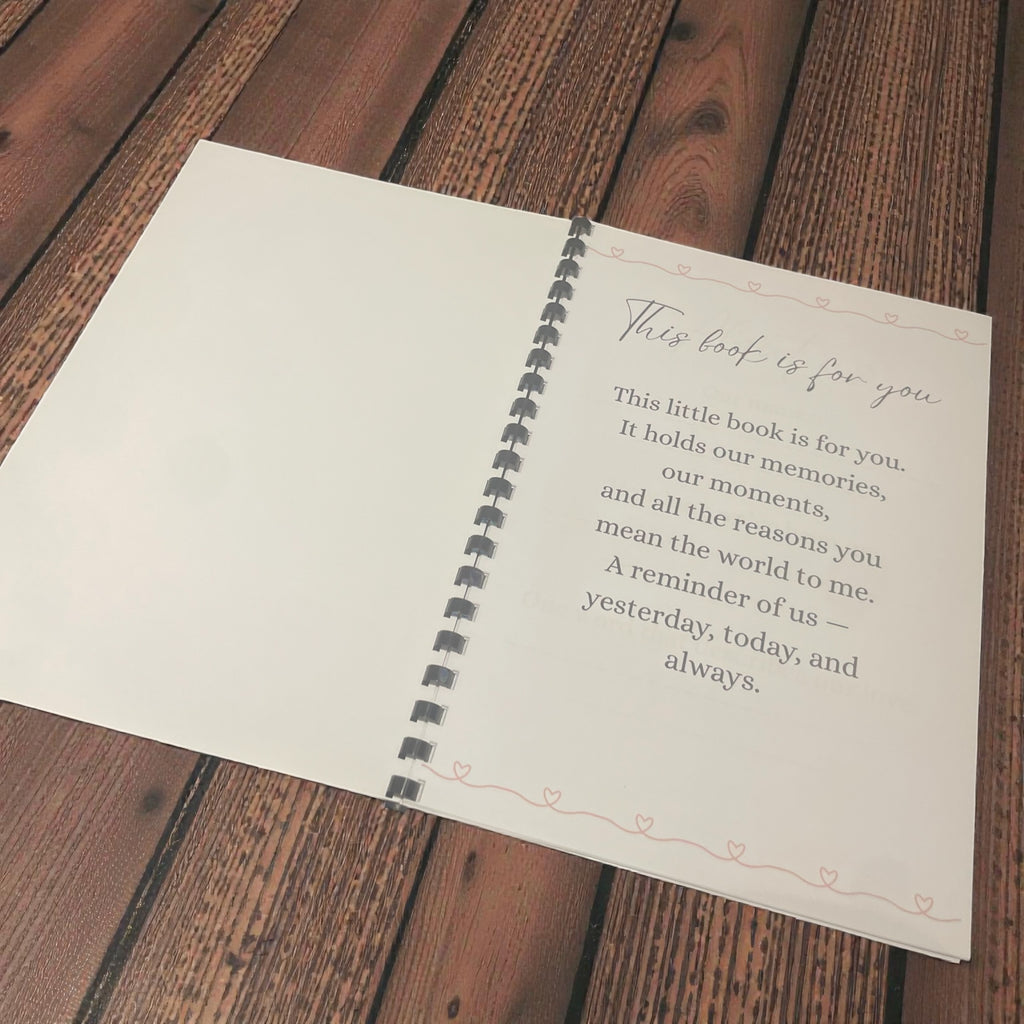 This book is for you
This little book is for you.
It holds our memories,
our moments,
and all the reasons you
mean the world to me.
A reminder of us —
yesterday, today, and
always.